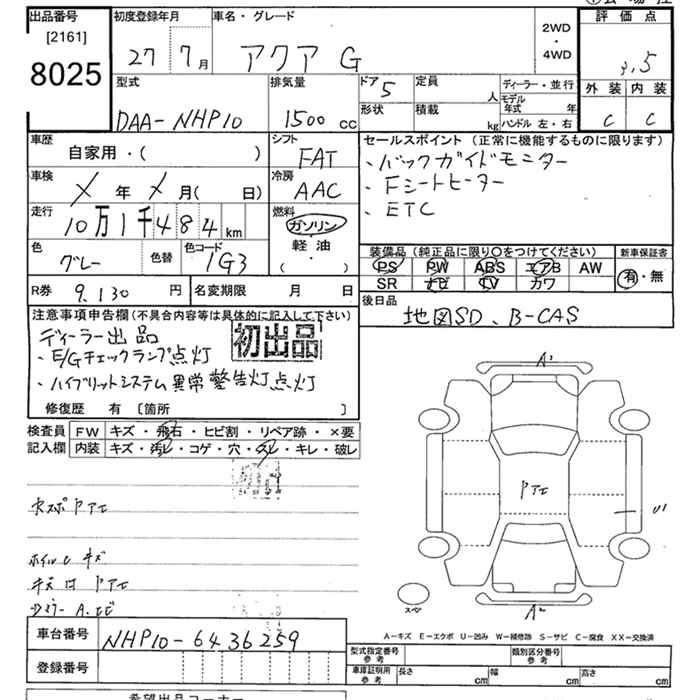 出品番号 初度登録年月 車名・グレード 評価点
[2161]
8025
27 7月 アクア G 2WD・4WD 3.5
型式 排気量 ドア 5 定員 人 ディーラー・並行 外装 内装
DAA-NHP10 1500cc 形状 積載 kg モデル年式 年 ハンドル 左・右 C C
車歴 シフト セールスポイント(正常に機能するものに限ります)
自家用・( ) FAT ・バックガイドモニター
車検 冷房 ・Fシートヒーター
X年X月( 日) AAC ・ETC
走行 燃料
10万1千484km ガソリン・軽油・( )
色 色替 色コード 装備品(純正品に限り○をつけてください) 新車保証書
グレー 1G3 PS PW ABS エアB AW 有・無
SR ナビ TV カワ
R券 9,130円 名変期限 月 日 後日品
地図SD、B-CAS
注意事項申告欄(不具合内容等は具体的に記入して下さい)
ディーラー出品 初出品
・E/Gチェックランプ点灯
・ハイブリットシステム異常警告灯点灯
修復歴 有 [箇所 ]
検査員記入欄 FW キズ・飛石・ヒビ割・リペア跡・×要
内装 キズ・汚レ・コゲ・穴・スレ・キレ・破レ
A2
スペア
A-キズ E-エクボ U-凹み W-補修跡 S-サビ C-腐食 XX-交換済
車台番号 NHP10-6436259
型式指定番号 参考 類別区分番号 参考
登録番号
車庫証明用 参考 長さ cm 幅 cm 高さ cm
希望出品コーナー